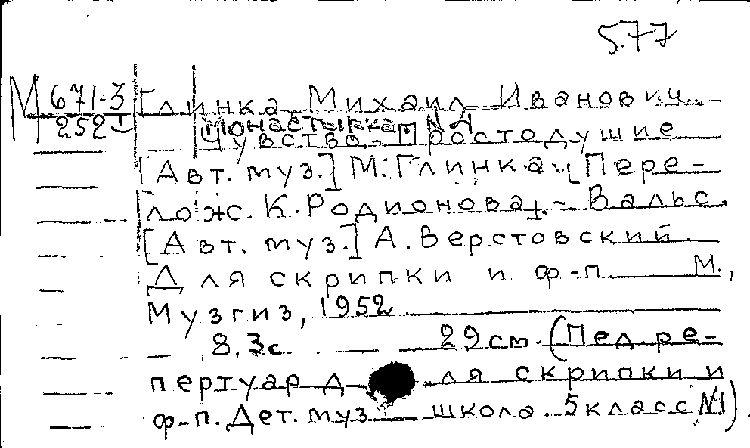 5.77
М 671-3 Глинка Михаил Иванович.
252 Монастырка.
Чувство. Простодушие
[Авт. муз.] М. Глинка. [Пере-
лож. К. Родионова]. - Вальс.
[Авт. муз.] А. Верстовский.
Для скрипки и ф-п. М.,
Музгиз, 1952
8. 3с. 29 см. (Пед. ре-
пертуар для скрипки и
ф-п. Дет. муз. школа. 5 класс №1).